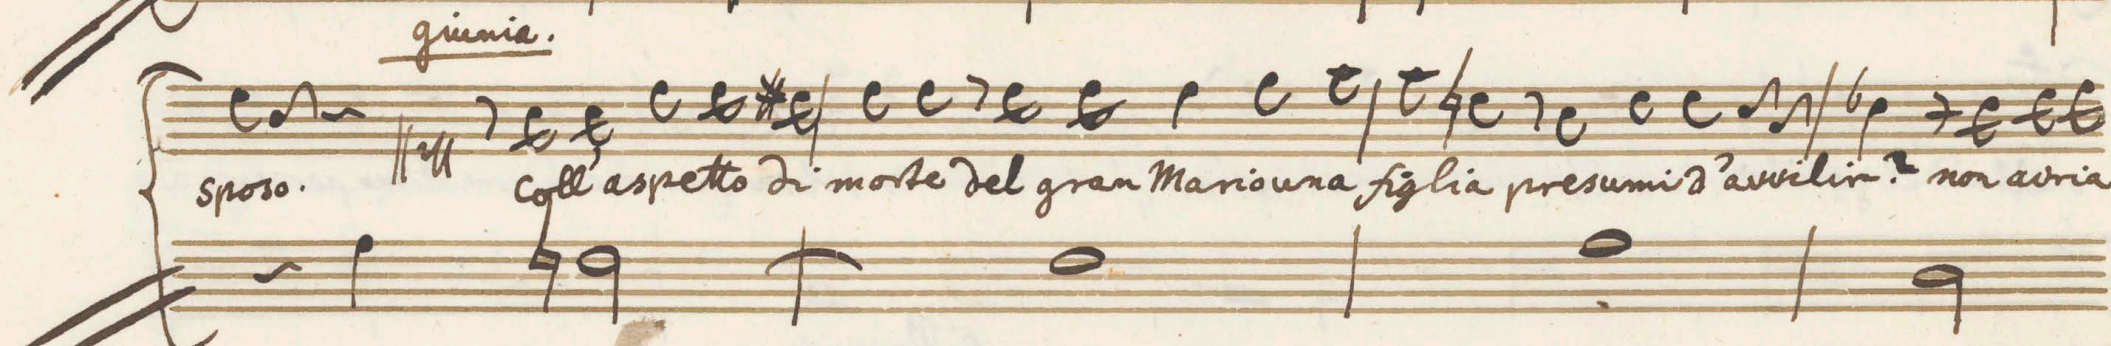 giunia.
sposo. coll'aspetto di morte del gran Mario una figlia presumi d'avvilir? non avria